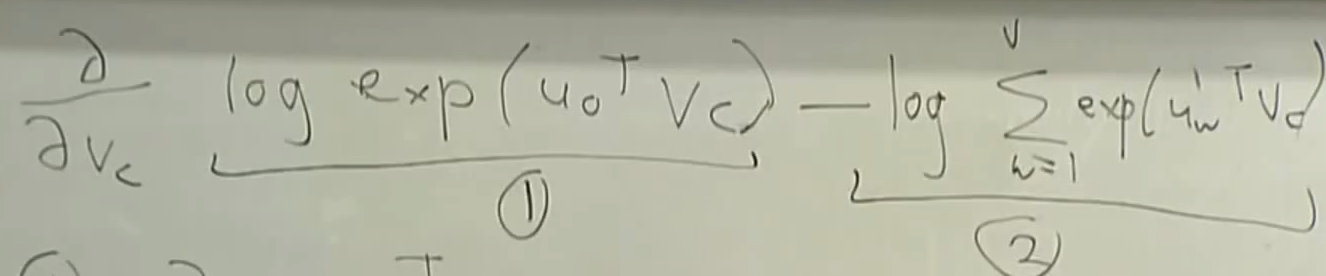 ∂/∂v_c log exp(u_o^T v_c) − log ∑_{w=1}^{V} exp(u_w^T v_c)
① ②